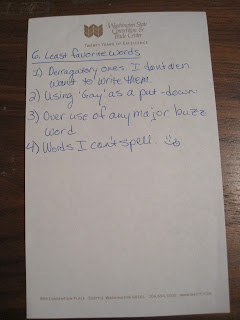 Washington State
Convention &
Trade Center
TWENTY YEARS OF EXCELLENCE
6. Least favorite words
1) Derragatory ones. I don't even
want to write them.
2) Using 'Gay' as a put-down
3) Over use of any major buzz
word.
4) Words I can't spell.